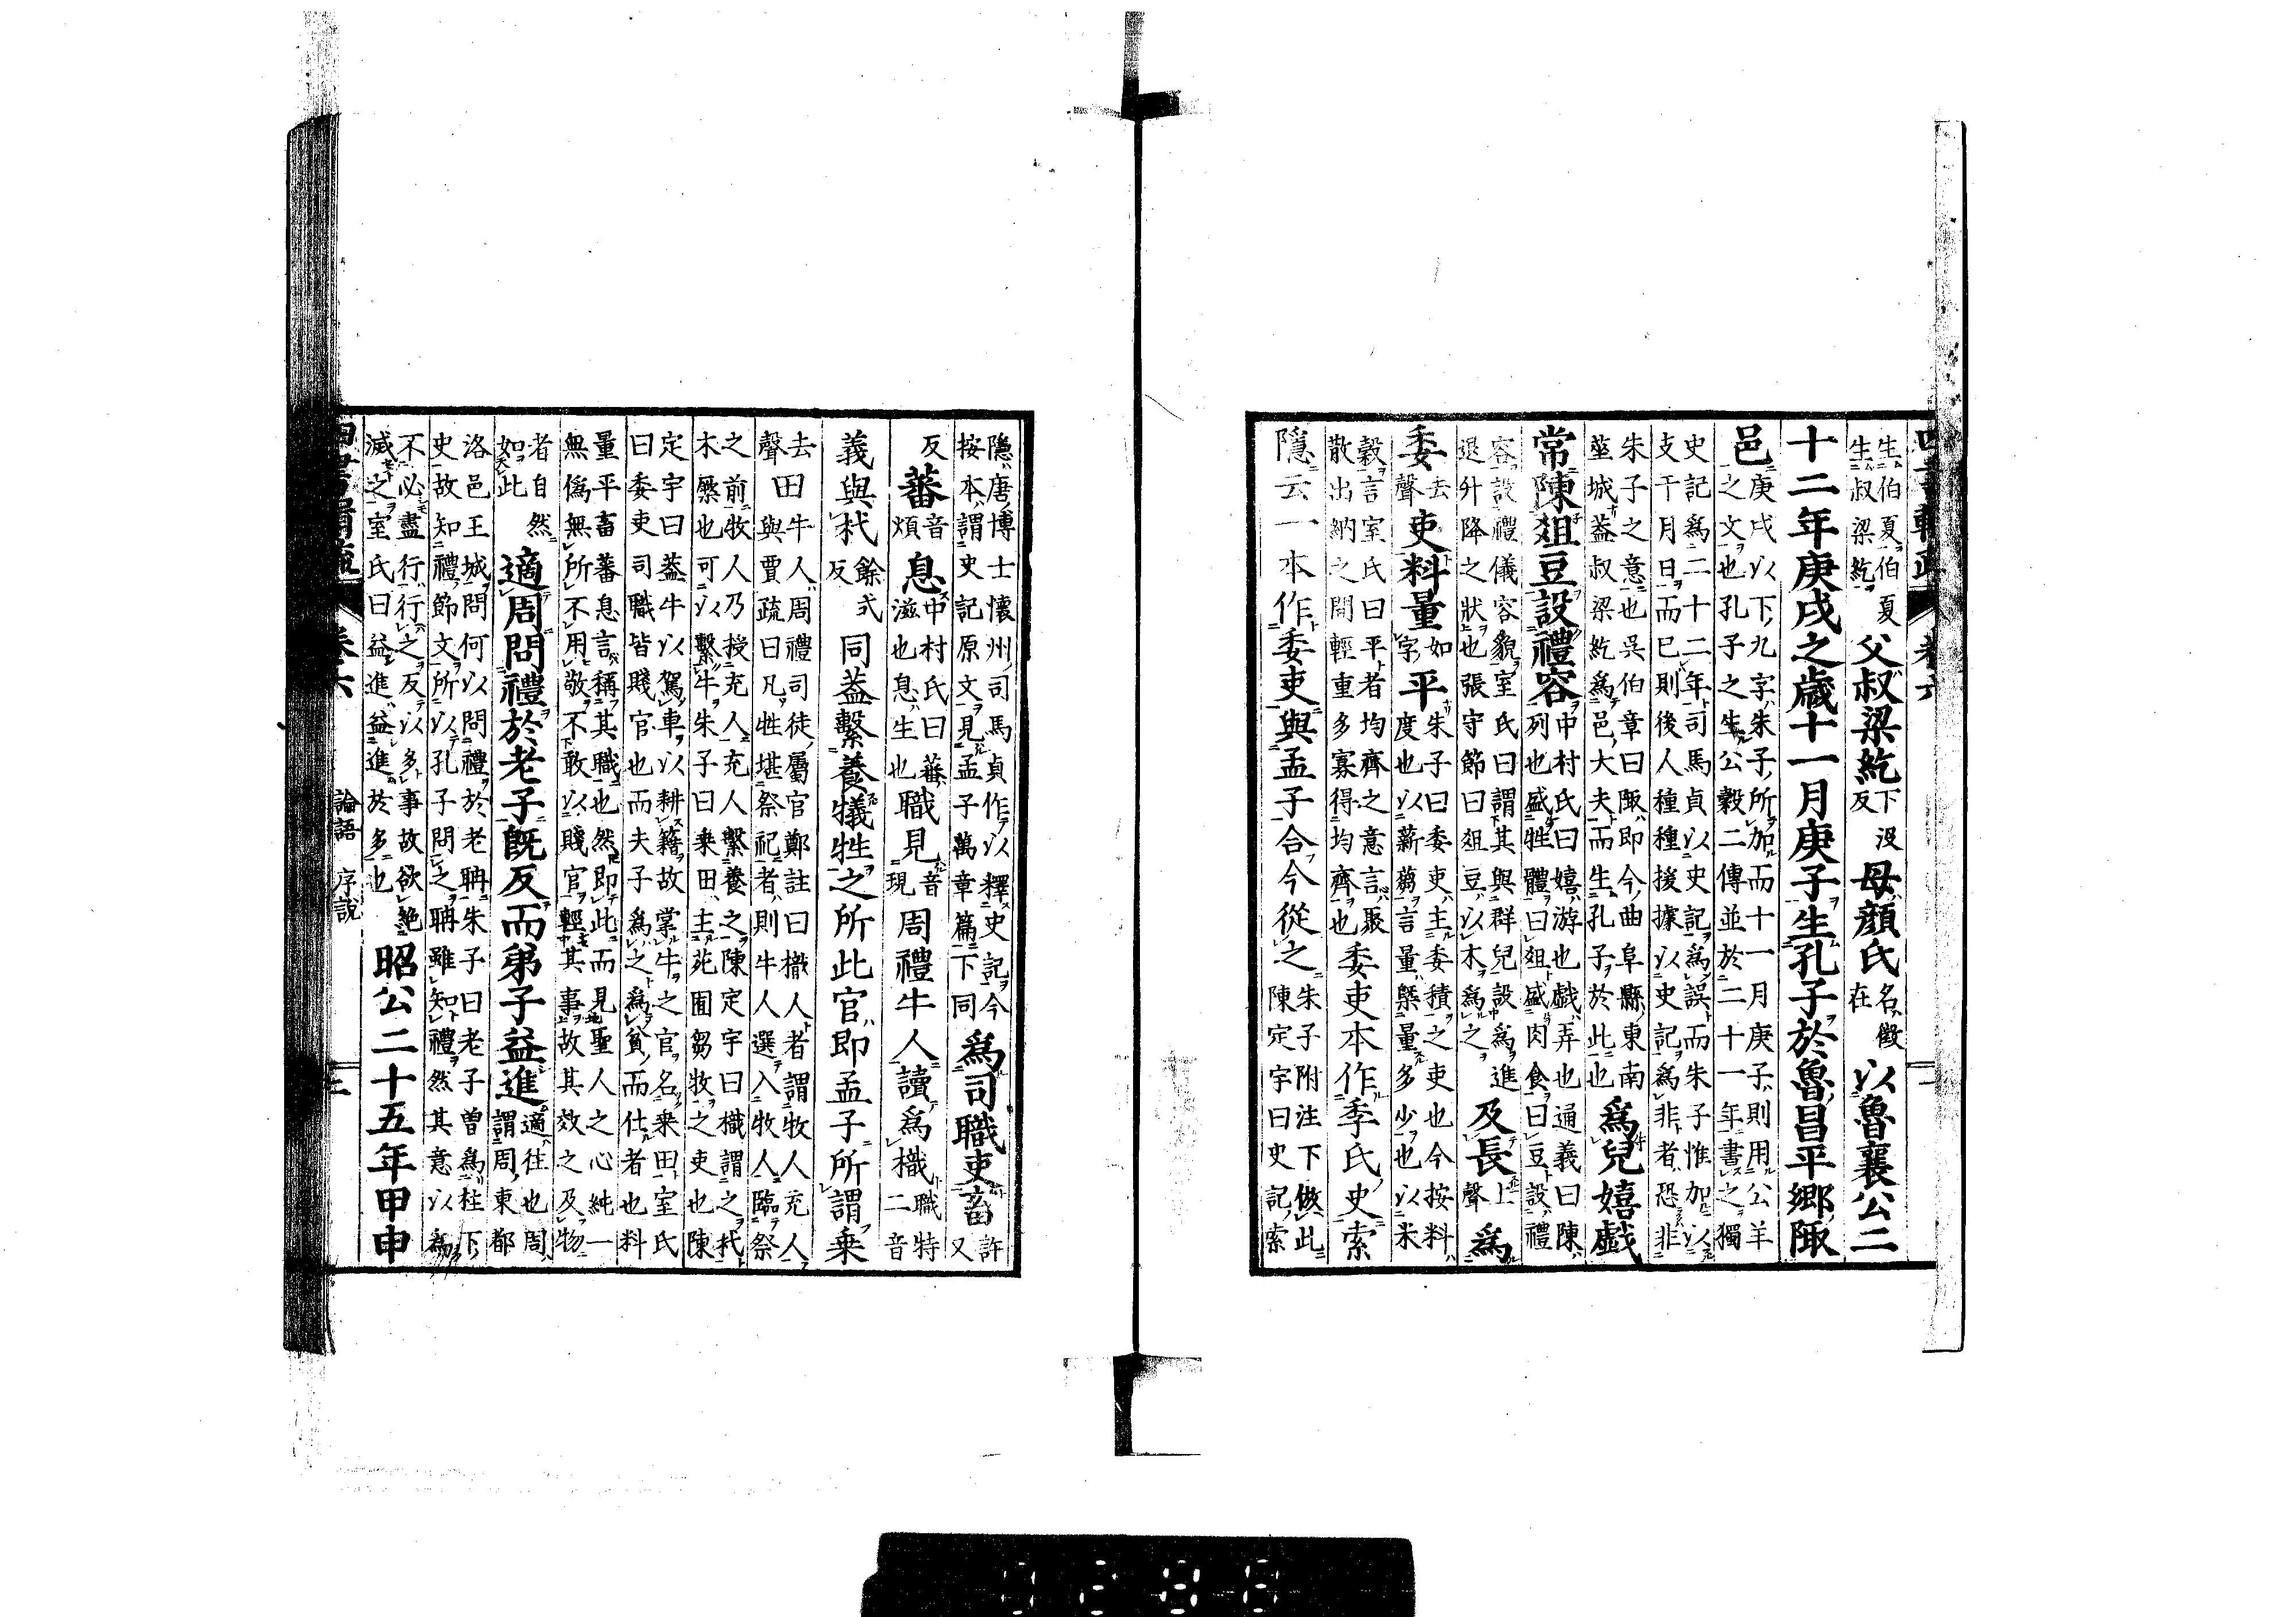 生伯夏伯夏
生叔梁紇
父叔梁紇
下没
反
母顏氏
名徵
在
以魯襄公二
十二年庚戌之歳十一月庚子生孔子於魯昌平郷陬
邑
庚戌以下九字朱子所加而十一月庚子則用公羊
之文也孔子之生公穀二傳並於二十一年書之獨
史記爲二十二年司馬貞以史記爲誤而朱子惟加以
支干月日而已則後人種種援據以史記爲非者恐非
朱子之意也吳伯章曰陬即今曲阜縣東南
莝城葢叔梁紇爲邑大夫而生孔子於此也
爲兒嬉戯
常陳爼豆設禮容
中村氏曰嬉游也戯弄也通義曰陳
列也盛牲體曰爼盛肉食曰豆設禮
容設禮儀容貌室氏曰謂其與群兒設爲進
退升降之狀也張守節曰爼豆以木爲之
及長
上
聲
爲
委
去
聲
吏料量
如
字
平
朱子曰委吏主委積之吏也今按料
度也以薪蒭言量槩量多少也以米
穀言室氏曰平者均齊之意言聚
散出納之間輕重多寡得均齊也
委吏本作季氏史索
隱云一本作委吏與孟子合今從之
朱子附注下倣此
陳定宇曰史記索
隱唐博士懷州司馬貞作以釋史記今
按本謂史記原文見孟子萬章篇下同
爲司職吏畜
許
又
反
蕃
音
煩
息
中村氏曰蕃
滋也息生也
職見
音
現
周禮牛人讀爲樴
職特
二音
義與杙
餘式
反
同葢繫養犧牲之所此官即孟子所謂乗
去
聲
田
牛人周禮司徒屬官鄭註曰樴人者謂牧人充人
與賈疏曰凡牲堪祭祀者則牛人選入牧人臨祭
之前牧人乃授充人充人繫養之陳定宇曰樴謂之杙
木橜也可以繫牛朱子曰乗田主苑囿芻牧之吏也陳
定宇曰葢牛以駕車以耕籍故掌牛之官名乗田室氏
曰委吏司職皆賤官也而夫子爲之爲貧而仕者也料
量平畜蕃息言稱其職也然即此而見聖人之心純一
無僞無所不用敬不敢以賤官輕其事故其效之及物
者自然
如此
適周問禮於老子旣反而弟子益進
適往也周
謂周東都
洛邑王城問何以問禮於老聃朱子曰老子曽爲柱下
史故知禮節文所以孔子問之聃雖知禮然其意以爲
不必盡行行之反以多事故欲絶
滅之室氏曰益進益進於多也
昭公二十五年甲申
卷六
論語 序説
三